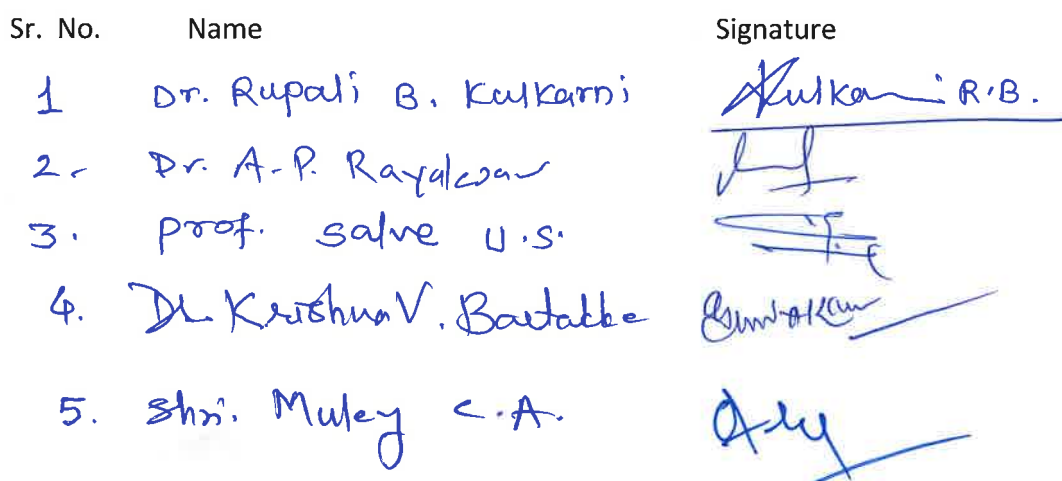 Sr. No. Name Signature
1 Dr. Rupali B. Kulkarni Kulkarni R.B.
2. Dr. A.P. Rayalwar
3. Prof. Salve U.S.
4. Dr. Krishna V.
5. Shri. Muley C.A.